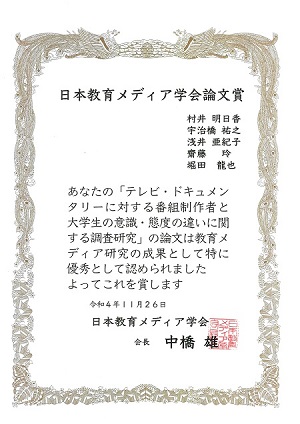 日本教育メディア学会論文賞
村井 明日香
宇治橋 祐之
浅井 亜紀子
齋藤 玲
堀田 龍也
あなたの「テレビ・ドキュメン
タリーに対する番組制作者と
大学生の意識・態度の違いに関
する調査研究」の論文は教育メ
ディア研究の成果として特に
優秀として認められました
よってこれを賞します
令和4年11月26日
日本教育メディア学会
会長 中橋 雄